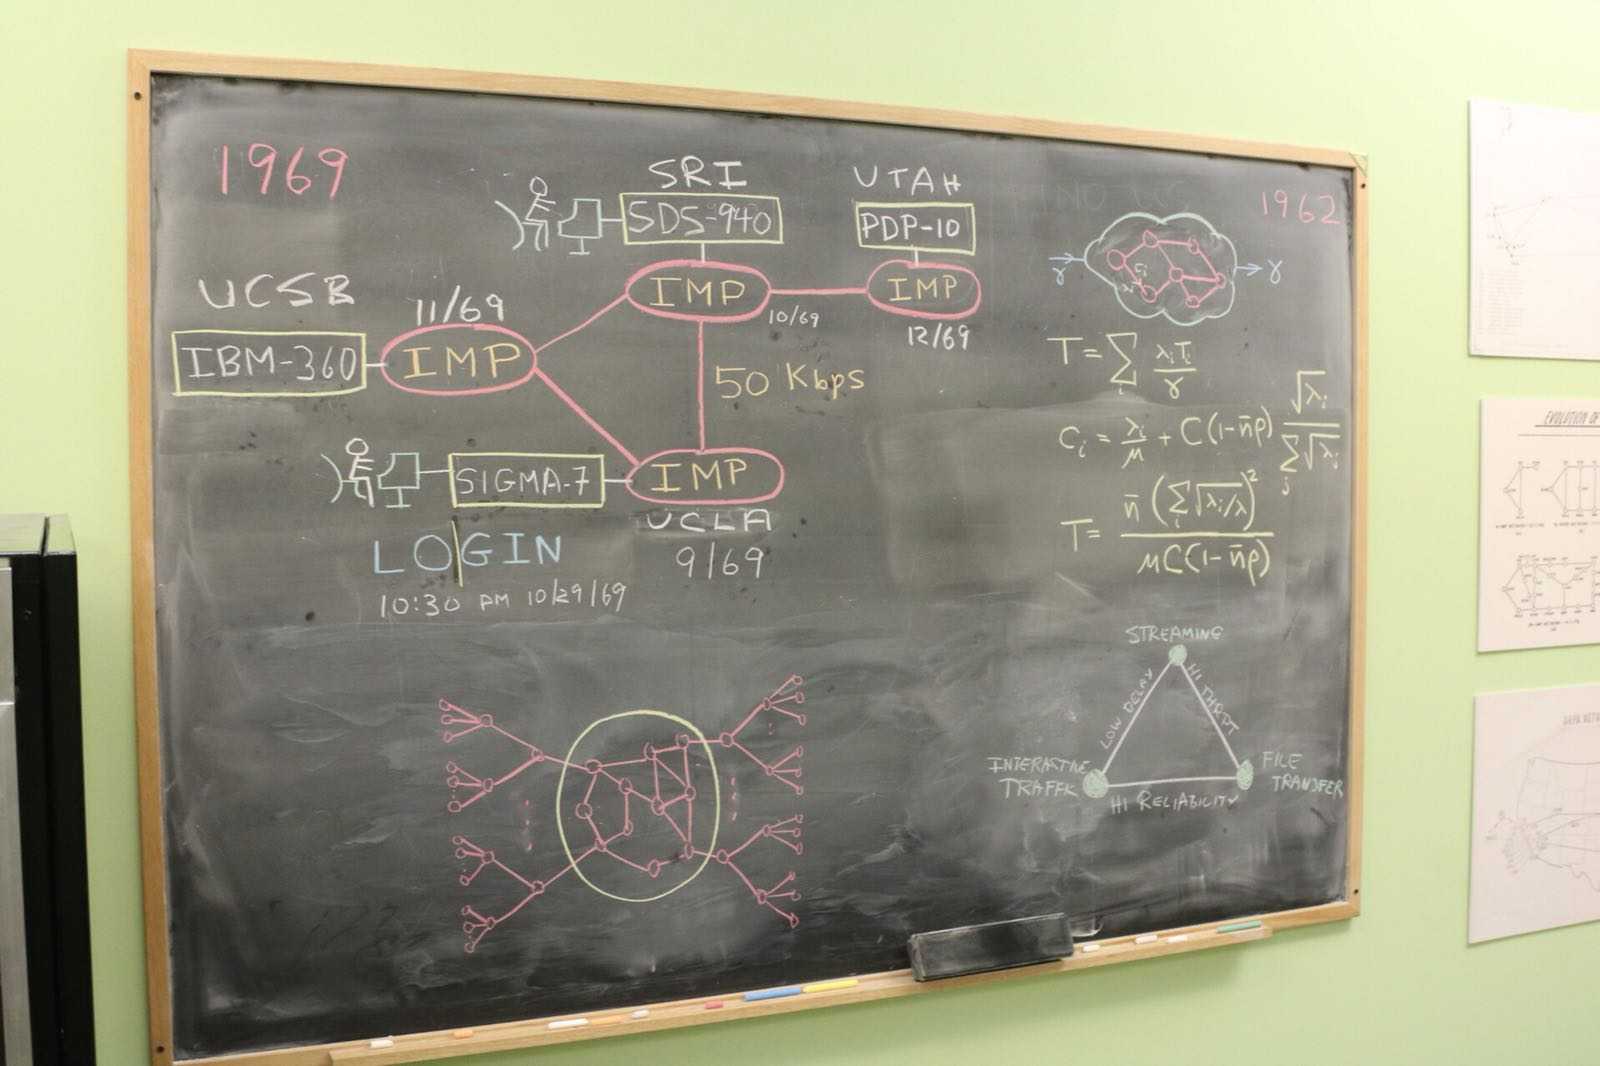 1969
SRI
SDS-940
UTAH
PDP-10
IMP
10/69
IMP
12/69
UCSB
IBM-360
11/69
IMP
50 Kbps
SIGMA-7
IMP
UCLA
9/69
LO|GIN
10:30 PM 10/29/69
1962
γ
γ
T = Σ_i λ_i T_i / γ
C_i = λ_i / μ + C(1 - n̄ρ) √λ_i / Σ_j √λ_j
T = n̄ (Σ_i √(λ_i/λ))² / μC(1 - n̄ρ)
STREAMING
LOW DELAY
HI THRPT
INTERACTIVE
TRAFFIC
FILE
TRANSFER
HI RELIABILITY
EVOLUTION OF